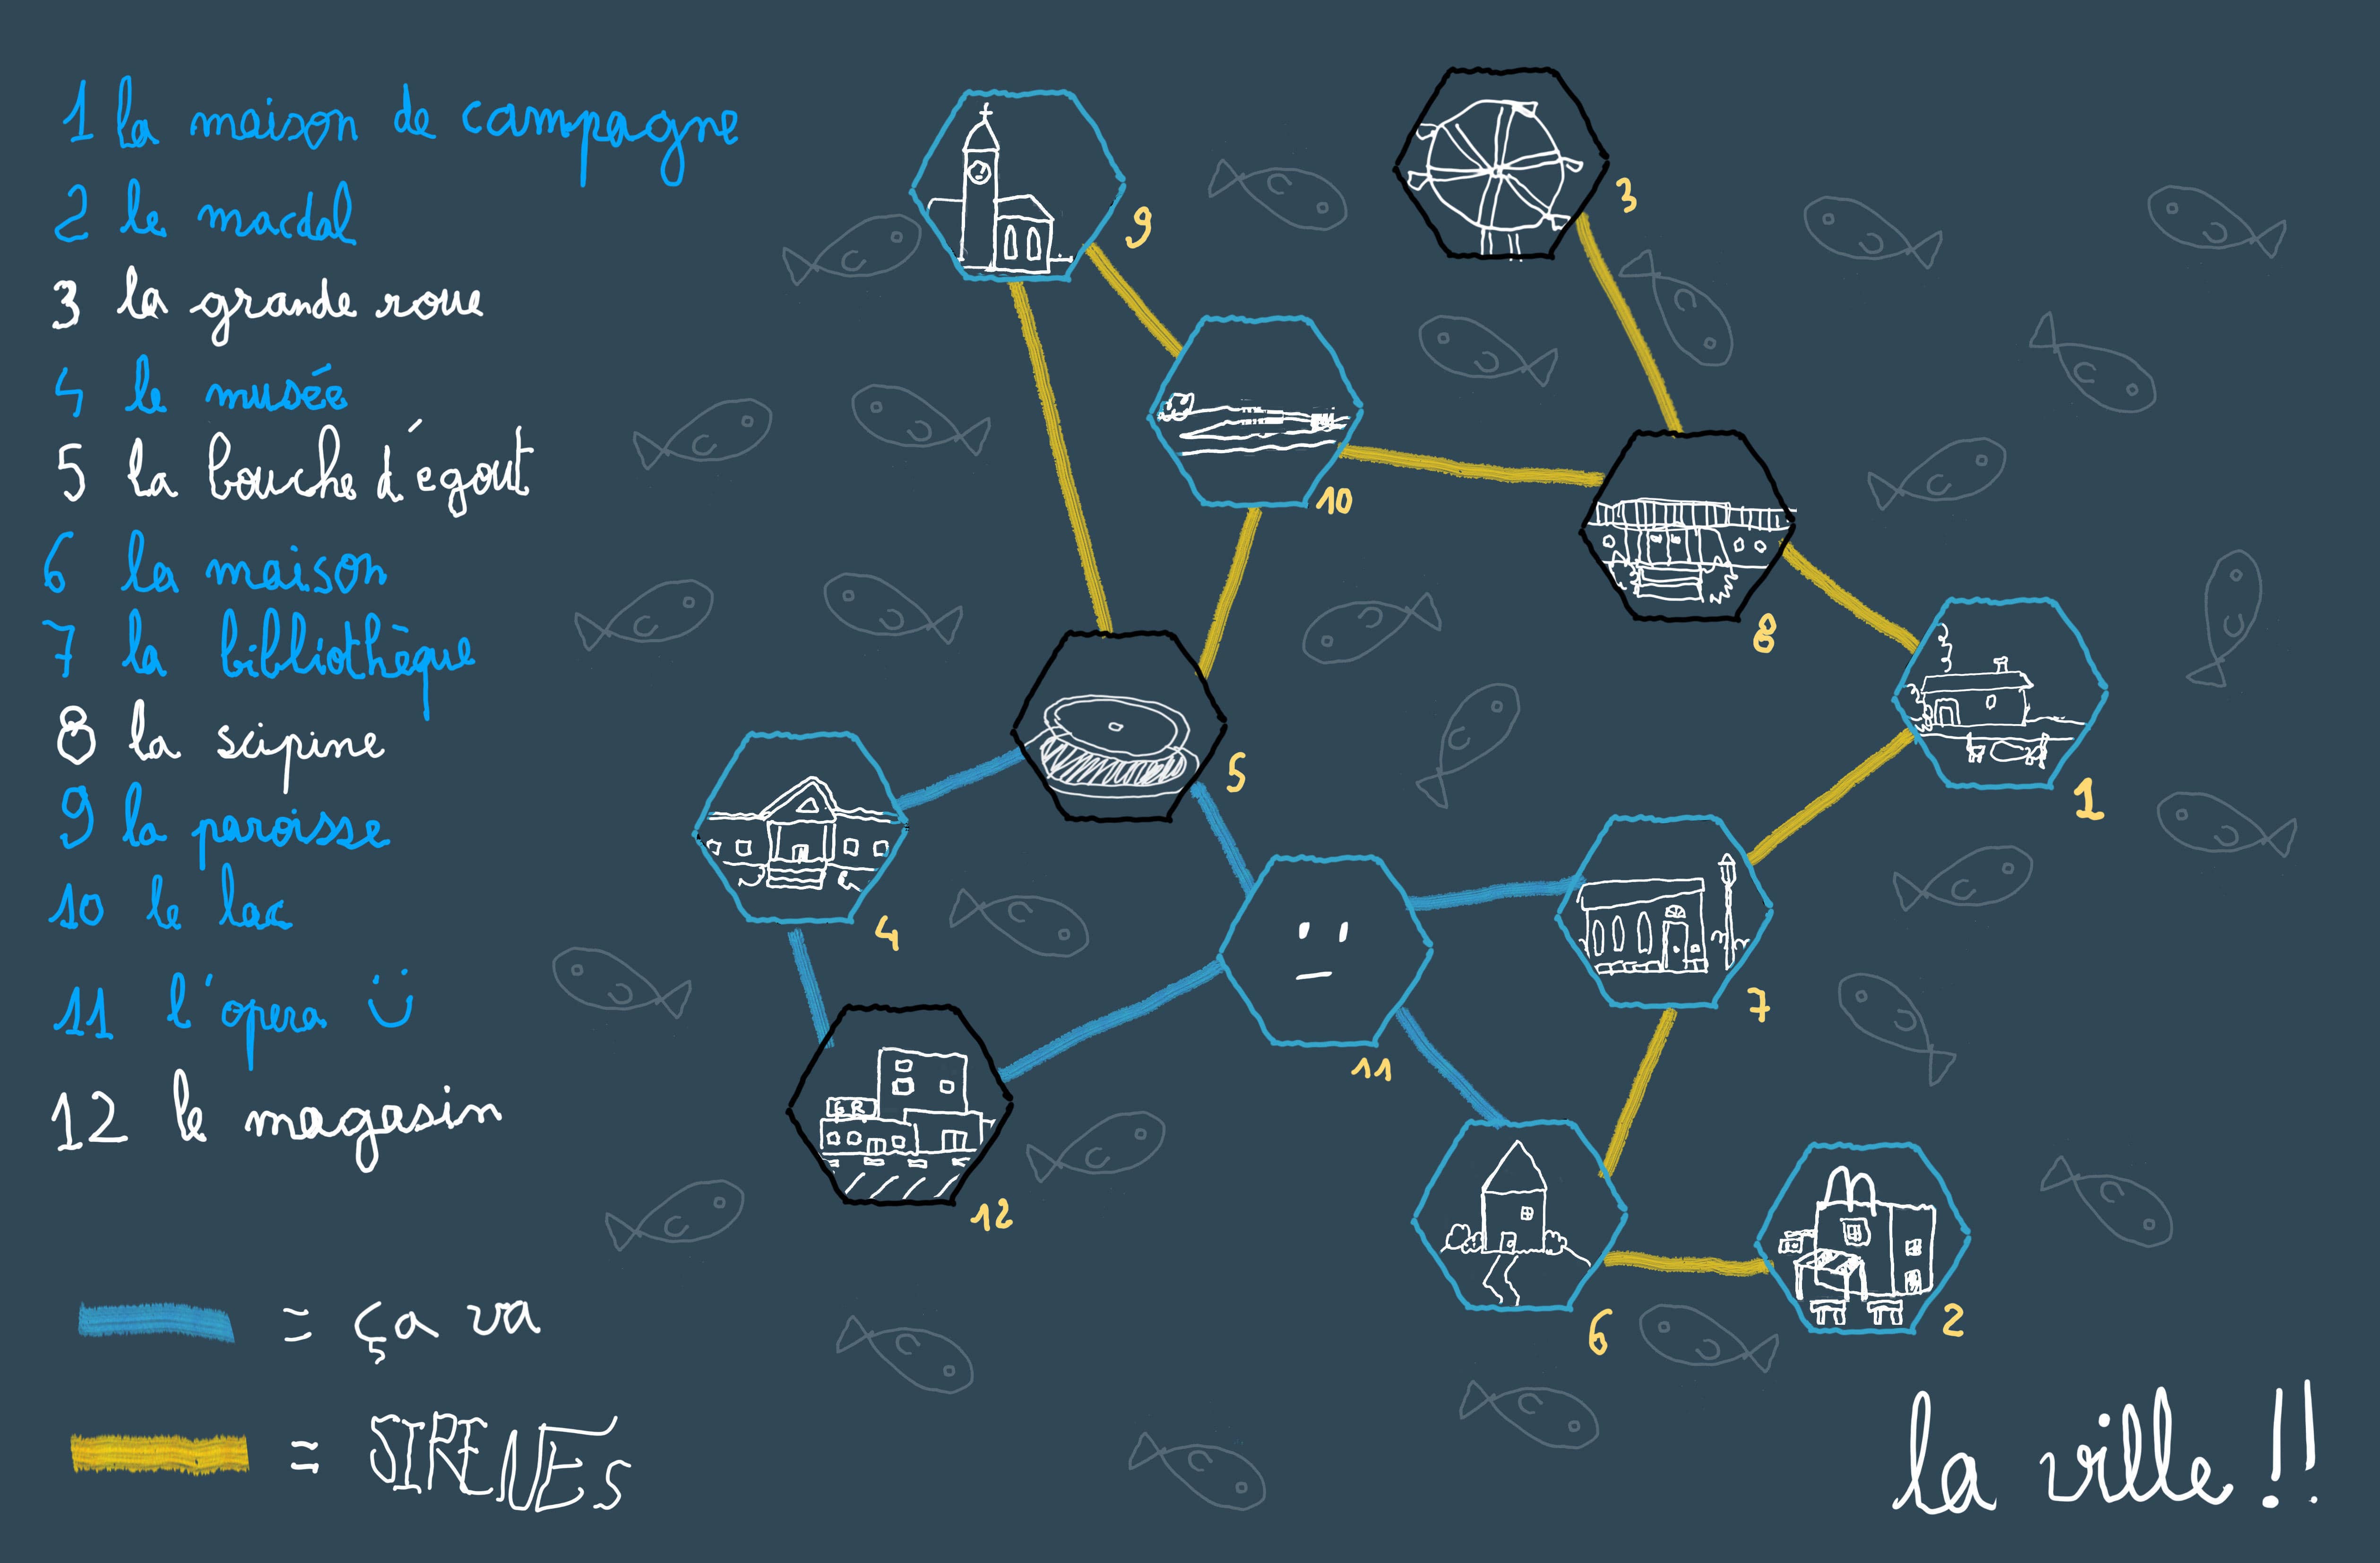 1 la maison de campagne
2 le macdal
3 la grande roue
4 le musée
5 la bouche d'égout
6 la maison
7 la bibliothèque
8 la scipine
9 la paroisse
10 le lac
11 l'opera
12 le magasin
= ça va
= SIRENES
9
3
10
8
1
5
4
7
11
GR
12
6
2
la ville !!